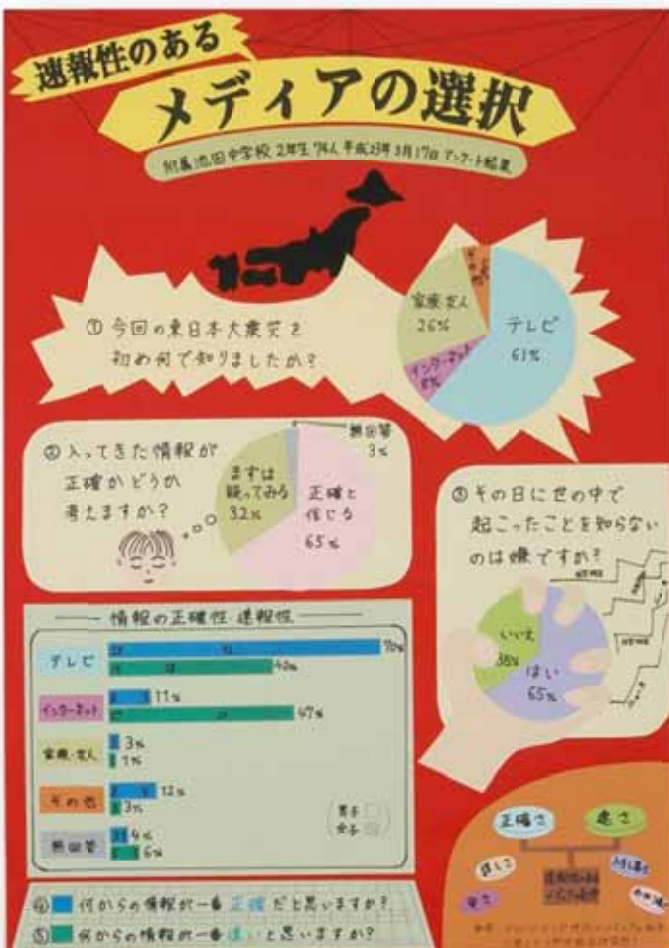 速報性のある
メディアの選択
附属池田中学校 2年生 74人 平成23年3月17日 アンケート結果
① 今回の東日本大震災を
初め何で知りましたか?
テレビ
61%
家族・友人
26%
インターネット
8%
その他
② 入ってきた情報が
正確かどうか
考えますか?
無回答
3%
まずは
疑ってみる
32%
正確と
信じる
65%
③ その日に世の中で
起こったことを知らない
のは嫌ですか?
いいえ
35%
はい
65%
情報の正確性・速報性
テレビ
70%
インターネット
11%
47%
家族・友人
3%
1%
その他
12%
3%
無回答
4%
6%
男子
女子
④ 何からの情報が一番正確だと思いますか?
⑤ 何からの情報が一番速いと思いますか?
正確さ
速さ